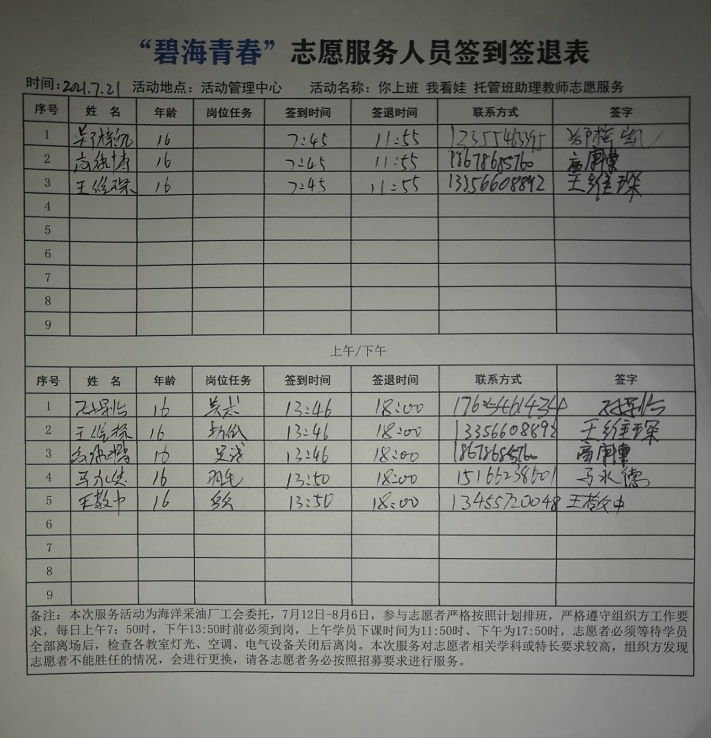 “碧海青春”志愿服务人员签到签退表
时间：2021.7.21 活动地点：活动管理中心 活动名称：你上班 我看娃 托管班助理教师志愿服务
序号 姓 名 年龄 岗位任务 签到时间 签退时间 联系方式 签字
1 16 7:45 11:55
2 16 7:45 11:55 18678685760 高唐棠
3 王维琛 16 7:45 11:55 13356608892 王维琛
4
5
6
7
8
9
上午/下午
序号 姓 名 年龄 岗位任务 签到时间 签退时间 联系方式 签字
1 16 13:46 18:00
2 王维琛 16 13:46 18:00 13356608892 王维琛
3 16 13:46 18:00 18678685760
4 马永德 16 羽毛 13:50 18:00 15166238501 马永德
5 王敬中 16 13:50 18:00 13455720048 王敬中
6
7
8
9
备注：本次服务活动为海洋采油厂工会委托，7月12日-8月6日，参与志愿者严格按照计划排班，严格遵守组织方工作要
求，每日上午7：50时，下午13:50时前必须到岗，上午学员下课时间为11:50时、下午为17:50时，志愿者必须等待学员
全部离场后，检查各教室灯光、空调、电气设备关闭后离岗。本次服务对志愿者相关学科或特长要求较高，组织方发现
志愿者不能胜任的情况，会进行更换，请各志愿者务必按照招募要求进行服务。